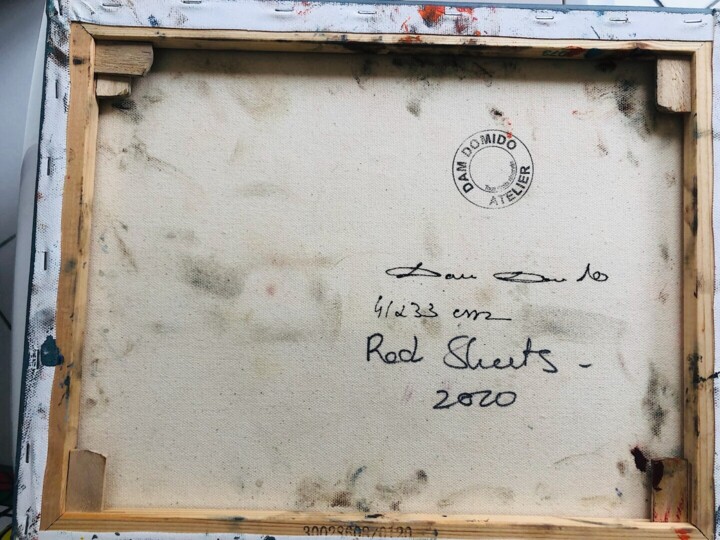 DAM DOMIDO
ATELIER
Dam Domido
41x33 cm
Red Sheets -
2020